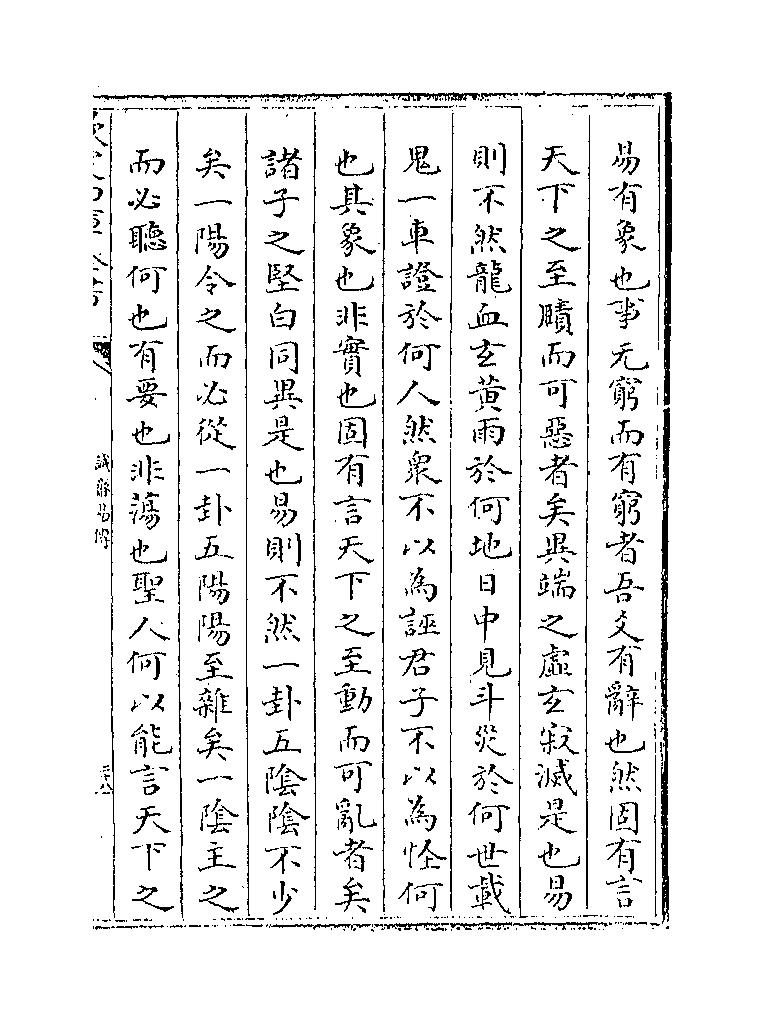 易有象也事无窮而有窮者吾爻有辭也然固有言
天下之至賾而可惡者矣異端之虛玄寂滅是也易
則不然龍血玄黃雨於何地日中見斗災於何世載
鬼一車證於何人然衆不以為誣君子不以為怪何
也其象也非實也固有言天下之至動而可亂者矣
諸子之堅白同異是也易則不然一卦五陰陰不少
矣一陽令之而必從一卦五陽陽至雜矣一陰主之
而必聽何也有要也非蕩也聖人何以能言天下之
誠齋易傳